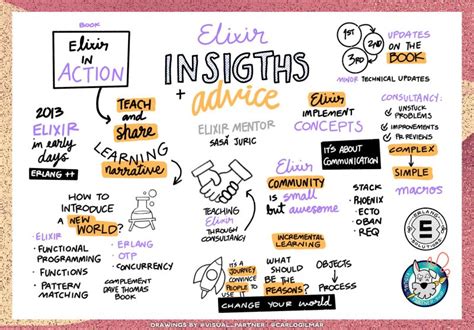 BOOK
Elixir
in
ACTION
Elixir
INSIGTHS
+ advice
ELIXIR MENTOR
SASA JURIC
1ST
2ND
3RD
UPDATES
ON THE
BOOK
MINOR TECHNICAL UPDATES
2013
ELIXIR
in early
days
ERLANG ++
TEACH
and
share
LEARNING
narrative
Elixir
IMPLEMENT
CONCEPTS
IT'S ABOUT
COMMUNICATION
CONSULTANCY:
UNSTUCK
PROBLEMS
IMPROVEMENTS
PR REVIEWS
COMPLEX
SIMPLE
macros
HOW TO
INTRODUCE
A NEW
WORLD?
ELIXIR
FUNCTIONAL
PROGRAMMING
FUNCTIONS
PATTERN
MATCHING
ERLANG
OTP
CONCURRENCY
COMPLEMENT
DAVE THOMAS
BOOK
TEACHING
Elixir
THROUGH
CONSULTANCY
Elixir
COMMUNITY
is small
but awesome
STACK
PHOENIX
ECTO
OBAN
REQ
ERLANG
E
SOLUTIONS
INCREMENTAL
LEARNING
IT'S A
JOURNEY
CONVINCE
PEOPLE TO
USE IT
WHAT
SHOULD
BE THE
REASONS?
OBJECTS
PROCESS
CHANGE YOUR World
DRAWINGS BY @VISUAL_PARTNER @CARLOGILMAR